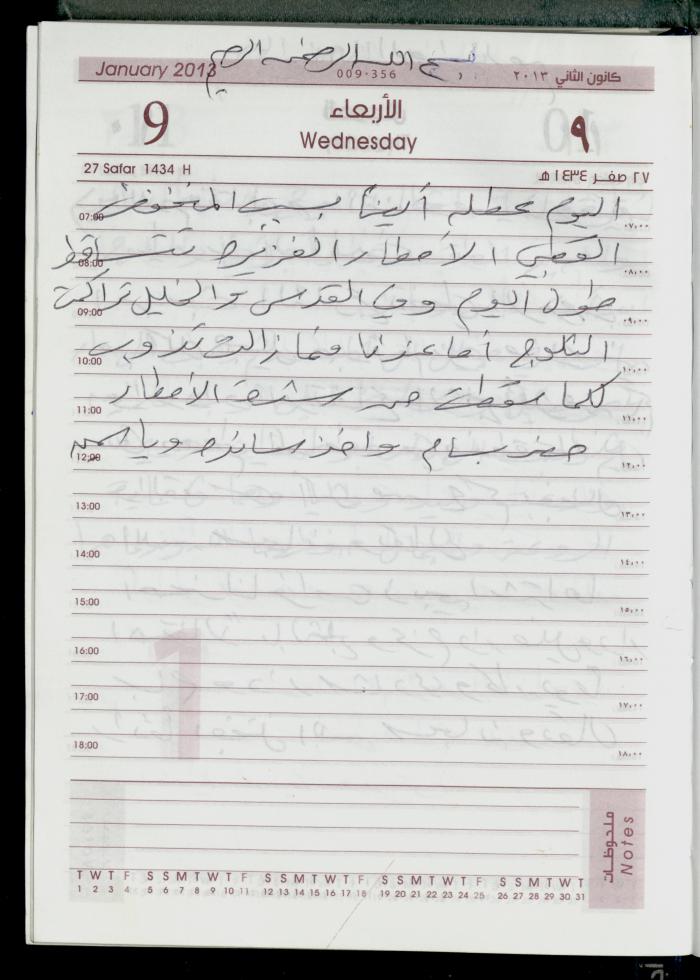 بسم الله الرحمن الرحيم
January 2013 009-356 كانون الثاني ٢٠١٣
9 الأربعاء ٩
Wednesday
27 Safar 1434 H ٢٧ صفر ١٤٣٤ هـ
اليوم عطلة أيضاً بسبب المنخفض
07:00 ٠٧,٠٠
القطبي الأمطار الغزيرة تتساقط
08:00 ٠٨,٠٠
طول اليوم وفي القدس والخليل تراكمت
09:00 ٠٩,٠٠
الثلوج أما عندنا فما زالت تذوب
10:00 ١٠,٠٠
كلما سقطت من الأمطار
11:00 ١١,٠٠
حضر بسام واخذ سائده وياسمين
12:00 ١٢,٠٠
13:00 ١٣,٠٠
14:00 ١٤,٠٠
15:00 ١٥,٠٠
16:00 ١٦,٠٠
17:00 ١٧,٠٠
18:00 ١٨,٠٠
ملحوظات
Notes
T W T F S S M T W T F S S M T W T F S S M T W T F S S M T W T
1 2 3 4 5 6 7 8 9 10 11 12 13 14 15 16 17 18 19 20 21 22 23 24 25 26 27 28 29 30 31